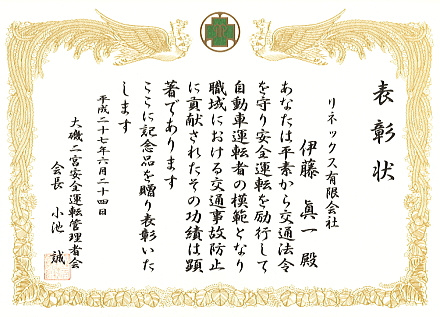 表彰状
リネックス有限会社
伊藤 眞一 殿
あなたは平素から交通法令
を守り安全運転を励行して
自動車運転者の模範となり
職域における交通事故防止
に貢献されたその功績は顕
著であります
ここに記念品を贈り表彰いた
します
平成二十七年六月二十四日
大磯二宮安全運転管理者会
会長 小池 誠